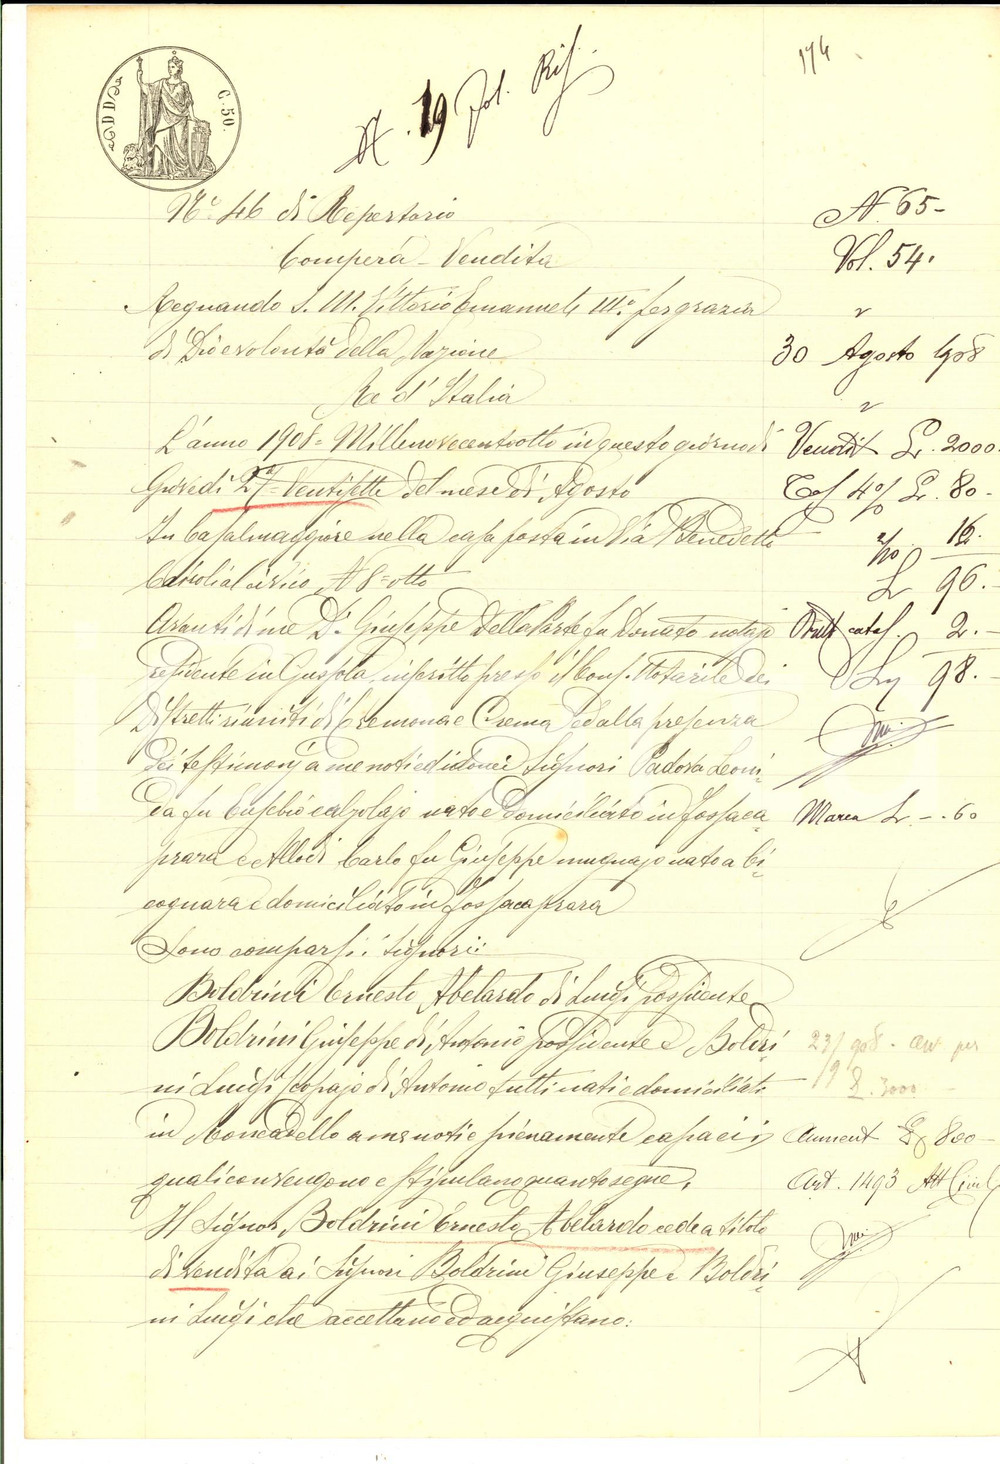 174
N. 19 Vol. Rif.
C. 50.
N.° 46 di Repertorio
Compera - Vendita
Regnando S. M. Vittorio Emanuele III° per grazia
di Dio e volontà della Nazione
Re d'Italia
L'anno 1908 = Millenovecentootto in questo giorno di
Giovedì 27 = Ventisette del mese di Agosto
In Casalmaggiore nella casa posta in Via Benedetto
Cairoli al civico N 8 = otto
Avanti di me Dr. Giuseppe Della fu Donato notajo
residente in Gussola, inscritto presso il Cons. Notarile dei
Distretti riuniti di Cremona e Crema ed alla presenza
dei testimonj a me noti ed idonei Signori Padova Leoni-
da fu Eusebio calzolajo nato e domiciliato in Fossaca-
prara e Allodi Carlo fu Giuseppe mugnajo nato a Ci-
cognara e domiciliato in Fossacaprara
Sono comparsi i Signori:
Boldrini Ernesto Abelardo di Luigi possidente
Boldrini Giuseppe di Antonio possidente e Boldri-
ni Luigi scopajo di Antonio tutti nati e domiciliati
in Roncadello a me noti e pienamente capaci, i
quali convengono e stipulano quanto segue.
Il Signor Boldrini Ernesto Abelardo cede a titolo
di vendita ai Signori Boldrini Giuseppe e Boldri-
ni Luigi che accettano ed acquistano:
N. 65 -
Vol. 54.
30 Agosto 1908
Vendit L. 2000.
Tas 4% L. 80 -
2/10 16.
L 96. -
catas. 2. -
L 98. -
Marca L. - . 60
23/9 908. per
L. 3000
Aument L 800 -
Art. 1493 Att Civili